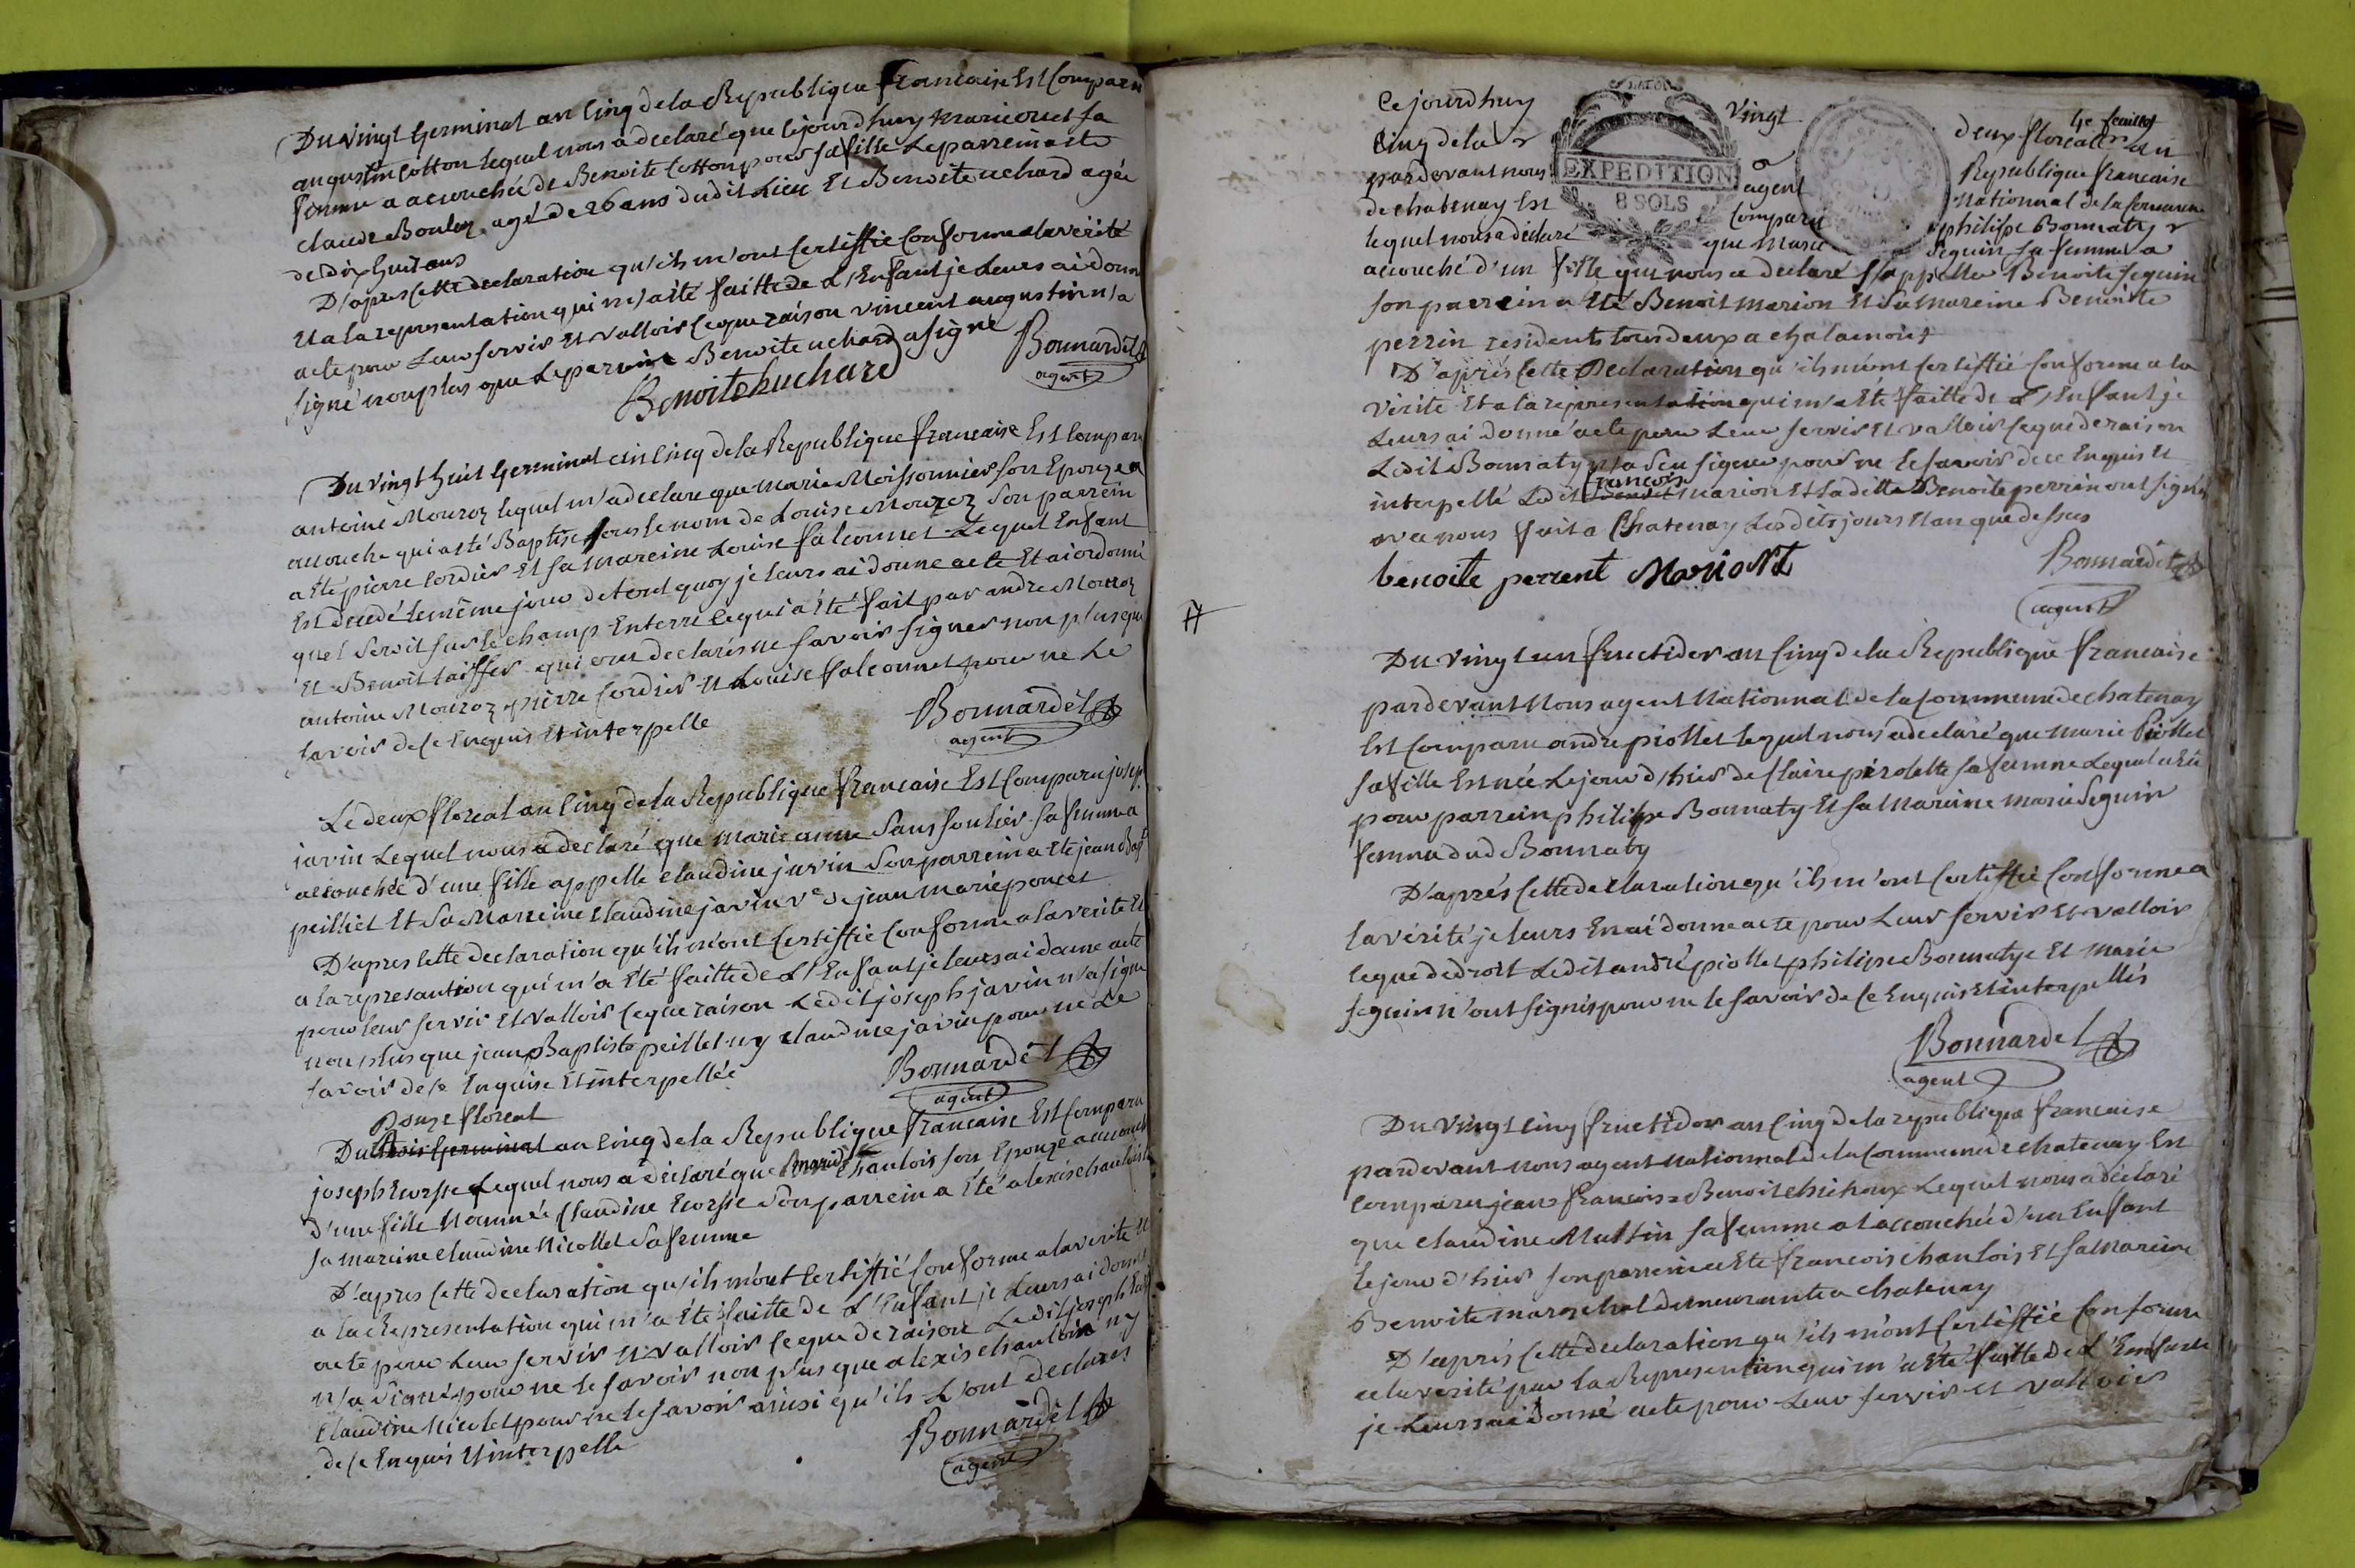 Du vingt Germinal an Cinq de la Republique francaise Est Comparu
augustin Cotton lequel nous a declaré que Cejourdhuy marie
femme a accouchée de Benoite Cotton pour sa fille Le parrein a ete
claude agé de 26 ans dudit Lieu Et Benoite uchard agée
de dix huit ans
D'apres Cette declaration qu'ils m'ont Certiffié Conforme a la verité
Et a la representation qui m'a été faitte de L'Enfant je Leurs ai donné
acte pour Leur servir Et valloir Ceque raison vincent augustin n'a
signé non plus que Le parrein Benoite uchard a signé
Benoite huchard
Bonnardel
agent
Du vingt huit Germinal an Cinq de la Republique francaise Est Comparu
antoine Mouroz lequel m'a declaré que marie Moissonnier son Epouze a
accouché qui a été Baptisé sous le nom de Louise Mouroz Son parrein
a Eté pierre Cordier Et sa Mareine Louise falconnet Lequel Enfant
Est decedé Le même jour de tout quoy je leurs ai donné acte Et ai ordonné
quel Seroit sur le champ Enterré Ce qui a été fait par andre Mouroz
Et Benoit qui ont declarés ne savoir signer non plus que
antoine Mouroz pierre Cordier Et Louise falconnet pour ne Le
savoir de Ce Enquis Et interpelle
Bonnardel
agent
Le deux floreal an Cinq de la Republique francaise Est Comparu josep
javin Lequel nous a declaré que marie anne Sanssoulier sa femme a
accouchée d'une fille appellé claudine javin Son parrein a Ete jean Bap
peillet Et Sa Mareine claudine javin ve de jean marie poncet
D'apres Cette declaration qu'ils m'ont Certiffié Conforme a la verité Et
a la represantion qui m'a Eté faitte de L'Enfant je leurs ai donné acte
pour leur servir Et valloir Ceque raison Ledit joseph javin n'a signé
non plus que jean Baptiste peillet ny claudine javin pour ne Le
savoir de Ce Enquise Et interpellée
Bonnardel
agent
Douze floreal
Du trois Germinal an Cinq de la Republique francaise Est Comparu
joseph Lequel nous a declaré que marie chanlois son Epouze accouché
d'une fille Nommée Claudine Son parrein a Eté alexis chanlois
sa mareine claudine Nicollet Sa femme
D'apres Cette declaration qu'ils m'ont Certiffié Conforme a la verité Et
a la Representation qui m'a Eté faitte de L'Enfant je Leurs ai donné
acte pour Leur servir Et valloir Ceque de raison Ledit joseph
n'a signé pour ne le savoir non plus que alexis chanlois ny
Claudine Nicolet pour ne le savoir ainsi qu'ils L'ont declarés
de Ce Enquis Et interpelle
Bonnardel
agent
4e feuillet
Ce jourdhuy vingt deux floreal an
Cinq de la Republique francaise
pardevant nous agent Nationnal de la Commune
de chatenay Est Comparu philipe Bonnaty
lequel nous a declaré que Marie Seguin sa femme a
EXPEDITION
8 SOLS
accouché d'un fille que nous a declaré s'appeller Benoite Seguin
son parrein a Eté Benoit marion Et Sa mareine Benoite
perrin residents tous deux a chalamont
D'après Cette Declaration qu'ils m'ont Certiffié Conforme a la
Verité Et a la representation qui m'a Eté faitte de L'Enfant je
Leurs ai donné acte pour Leur servir Et valloir Ceque de raison
Ledit Bonnaty n'a Seu signer pour ne le savoir de Ce Enquis Et
interpellé Ledit francois marion Et Laditte Benoite perrin ont signés
avec nous fait a Chatenay Lesdits jours Et an que dessus
benoite perrent Marion
Bonnardel
agent
Du vingt un fructidor an Cinq de la Republique francaise
pardevant Nous agent Nationnal de la Commune de chatenay
Est Comparu andre piollet lequel nous a declaré que marie piollet
sa fille Est née Le jour d'hier de Claire pirolette sa femme Lequel a Eu
pour parrein philipe Bonnaty Et sa Mareine marie Seguin
femme dud Bonnaty
D'aprés Cette declaration qu'ils m'ont Certiffié Conforme a
la vérité je leurs En ai donné acte pour Leur servir Et valloir
Ceque de droit Ledit andré piollet philipe Bonnatye Et Marie
seguin n'ont signés pour ne le savoir de Ce Enquis Et interpellés
Bonnardel
agent
Du vingt Cinq fructidor an Cinq de la republique francaise
pardevant nous agent nationnal de la Commune de chatenay Est
Comparu jean francois Benoit Lequel nous a déclaré
que claudine Muttin sa femme a accouchée d'un Enfant
le jour d'hier son parrein a Ete francois chanlois Et sa Mareine
Benoite marechal demeurante a chatenay
D'aprés Cette declaration qu'ils m'ont Certiffié Conforme
a la verité par la Represention qui m'a Eté faitte de L'Enfant
je Leurs ai donné acte pour Leur servir et valloir